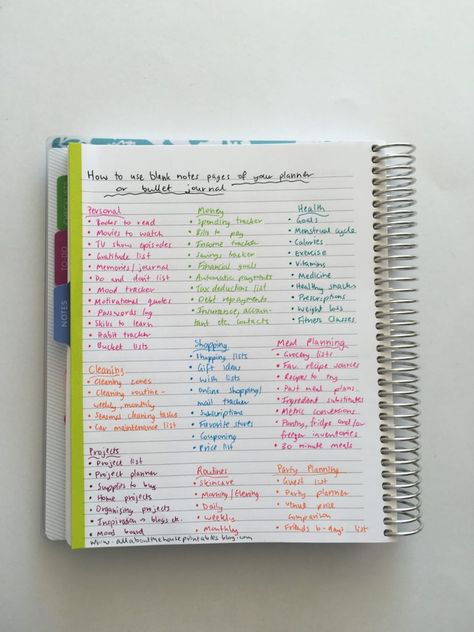 How to use blank notes pages of your planner
or bullet journal
Personal
• Books to read
• Movies to watch
• TV show episodes
• Gratitude list
• Memories/journal
• Do and don't list
• Mood tracker
• Motivational quotes
• Passwords log
• Skills to learn
• Habit tracker
• Bucket lists
Money
• Spending tracker
• Bills to pay
• Income tracker
• Savings tracker
• Financial goals
• Automatic payments
• Tax deductions list
• Debt repayments
• Insurance, accoun-
tant etc. contacts
Health
• Goals
• Menstrual cycle
• Calories
• Exercise
• Vitamins
• Medicine
• Healthy snacks
• Prescriptions
• Weight loss
• Fitness classes
Cleaning
• Cleaning zones
• Cleaning routine -
weekly, monthly
• Seasonal cleaning tasks
• Car maintenance list
Shopping
• Shopping lists
• Gift ideas
• Wish lists
• Online shopping/
mail tracker
• Subscriptions
• Favorite stores
• Couponing
• Price list
Meal Planning
• Grocery lists
• Fav. recipe sources
• Recipes to try
• Past meal plans
• Ingredient substitutes
• Metric conversions
• Pantry, fridge and/or
freezer inventories
• 30 minute meals
Projects
• Project list
• Project planner
• Supplies to buy
• Home projects
• Organising projects
• Inspiration → blogs etc.
• Mood board
Routines
• Skincare
• Morning/Evening
• Daily
• Weekly
• Monthly
Party Planning
• Guest list
• Party planner
• Venue price
comparison
• Friends b-days list
www.allaboutthehouseprintablesblog.com
TO-DO
NOTES